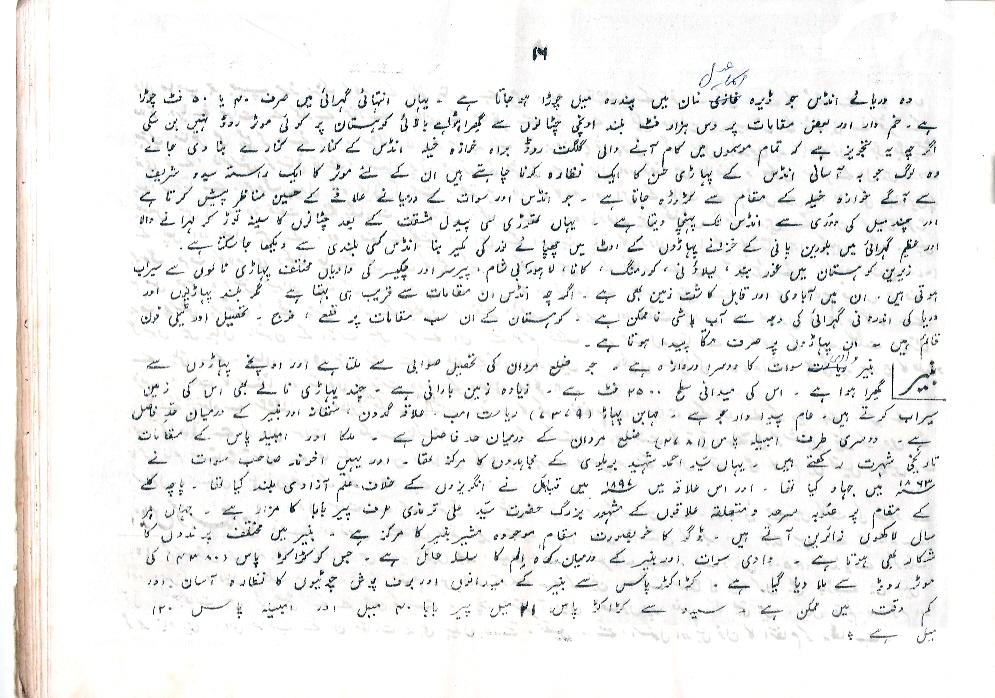 ۱۶
وہ دریائے انڈس جو ڈیرہ غازی خان میں پندرہ میل چوڑا ہو جاتا ہے ۔ یہاں انتہائی گہرائی میں صرف ۴۰ یا ۵۰ فٹ چوڑا
ہے ۔ خم دار اور بعض مقامات پر دس ہزار فٹ بلند اونچی چٹانوں سے گھرا ہوا ہے بالائی کوہستان پر کوئی موٹر روڈ نہیں بن سکی
اگر چہ یہ تجویز ہے کہ تمام موسموں میں کام آنے والی گلگت روڈ براہ خوازہ خیلہ انڈس کے کنارے کنارے بنا دی جائے
وہ لوگ جو بہ آسانی انڈس کے پہاڑی کا ایک نظارہ کرنا چاہتے ہیں ان کے لئے موٹر کا ایک رستہ سیدو شریف
سے آگے خوازہ خیلہ کے مقام سے مڑ جاتا ہے ۔ جو انڈس اور سوات کے درمیانے علاقے کے حسین مناظر پیش کرتا ہے
اور چند میل کی دوری سے انڈس تک پہنچا دیتا ہے ۔ یہاں تھوڑی سی پیدل مشقت کے بعد چٹانوں کا سینہ توڑ کر لہرانے والا
اور عظیم گہرائی میں بلورین پانی کے خزانے پہاڑوں کے اوٹ میں چھپائے نور کی لکیر بنا انڈس کسی بلندی سے دیکھا جا سکتا ہے ۔
زیریں کوہستان میں بیلاؤنی ، کورمنگ ، کانا ، لاہور پیرسر اور چکیسر کی وادیاں مختلف پہاڑی نالوں سے سیراب
ہوتی ہیں ۔ ان میں آبادی اور قابل کاشت زمین بھی ہے ۔ اگر چہ انڈس ان مقامات سے قریب ہی بہتا ہے مگر بلند پہاڑیوں اور
دریا کی اندرونی گہرائی کی وجہ سے آب پاشی ناممکن ہے ۔ کوہستان کے ان سب مقامات پر قلعے ، فوج ۔ تحصیل اور ٹیلی فون
قائم ہیں ۔ ان پہاڑوں پر صرف مکا پیدا ہوتا ہے ۔
بنیر
بنیر سوات کا دوسرا دروازہ ہے ۔ جو ضلع مردان کی تحصیل صوابی سے ملتا ہے اور اونچے پہاڑوں سے
گھرا ہوا ہے ۔ اس کی میدانی سطح ۲۵۰۰ فٹ ہے ۔ زیادہ زمین بارانی ہے ۔ چند پہاڑی نالے بھی اس کی زمین
سیراب کرتے ہیں ۔ عام پیدا وار جو ہے ۔ پہاڑ (۷۳۷۹) ریاست امب ، علاقہ گدون ، ستھانہ اور بنیر کے درمیان حد فاصل
ہے ۔ دوسری طرف امبیلہ پاس (۲۷۸۱) ضلع مردان کے درمیان حد فاصل ہے ۔ ملکا اور امبیلہ پاس کے مقامات
تاریخی شہرت رکھتے ہیں ۔ یہاں سید احمد شہید بریلوی کے مجاہدوں کا مرکز تھا ۔ اور یہیں اخوند صاحب سوات نے
۱۸۶۳ء میں جہاد کیا تھا ۔ اور اس علاقہ میں ۱۸۹۷ء میں قبائل نے انگریزوں کے خلاف علم آزادی بلند کیا تھا ۔ پاچہ کلے
کے مقام پر صوبہ سرحد و متعلقہ علاقوں کے مشہور بزرگ حضرت سید علی ترمذی عرف پیر بابا کا مزار ہے ۔ جہاں ہر
سال لاکھوں زائرین آتے ہیں ۔ ڈگر کا خوبصورت مقام موجودہ مشیر بنیر کا مرکز ہے ۔ بنیر میں مختلف پرندوں کا
شکار بھی ہوتا ہے ۔ وادی سوات اور بنیر کے درمیان کوہ ایلم کا سلسلہ حائل ہے ۔ جس کو کڑاکڑ پاس (۴۳۸۰) کی
موٹر روڈ سے ملا دیا گیا ہے ۔ کڑاکڑ پاس سے بنیر کے میدانوں اور برف پوش چوٹیوں کا نظارہ آسان اور
کم وقت میں ممکن ہے ۔ سیدو سے کڑاکڑ پاس ۲۱ میل پیر بابا ۴۰ میل اور امبیلہ پاس ۱۲۰
میل ہے